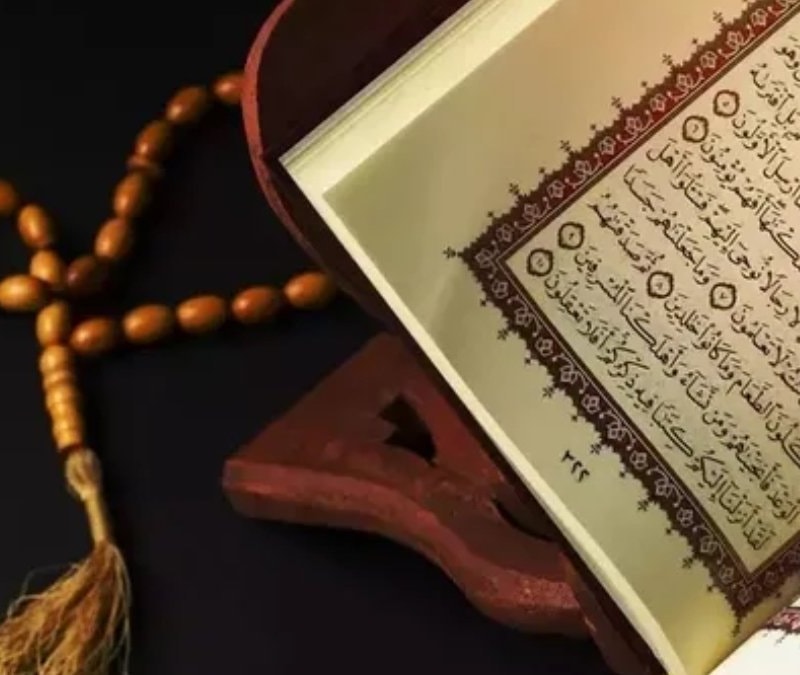 وَهُوَ
بَلِ ٱفْتَرَىٰهُ
أُرْسِلَ ٱلْأَوَّلُونَ ٥
أَفَهُمْ يُؤْمِنُونَ ٦
رِجَالًا نُّوحِىٓ إِلَيْهِمْ فَسْـَٔلُوٓا۟ أَهْلَ
لَا تَعْلَمُونَ ٧ وَمَا جَعَلْنَٰهُمْ جَسَدًا
ٱلطَّعَامَ وَمَا كَانُوا۟ خَٰلِدِينَ ٨ ثُمَّ صَدَقْنَٰهُمُ
ٱلْوَعْدَ فَأَنجَيْنَٰهُمْ وَمَن نَّشَآءُ وَأَهْلَكْنَا ٱلْمُسْرِفِينَ ٩
لَقَدْ أَنزَلْنَآ إِلَيْكُمْ كِتَٰبًا فِيهِ ذِكْرُكُمْ أَفَلَا تَعْقِلُونَ ١٠
٣٢٢